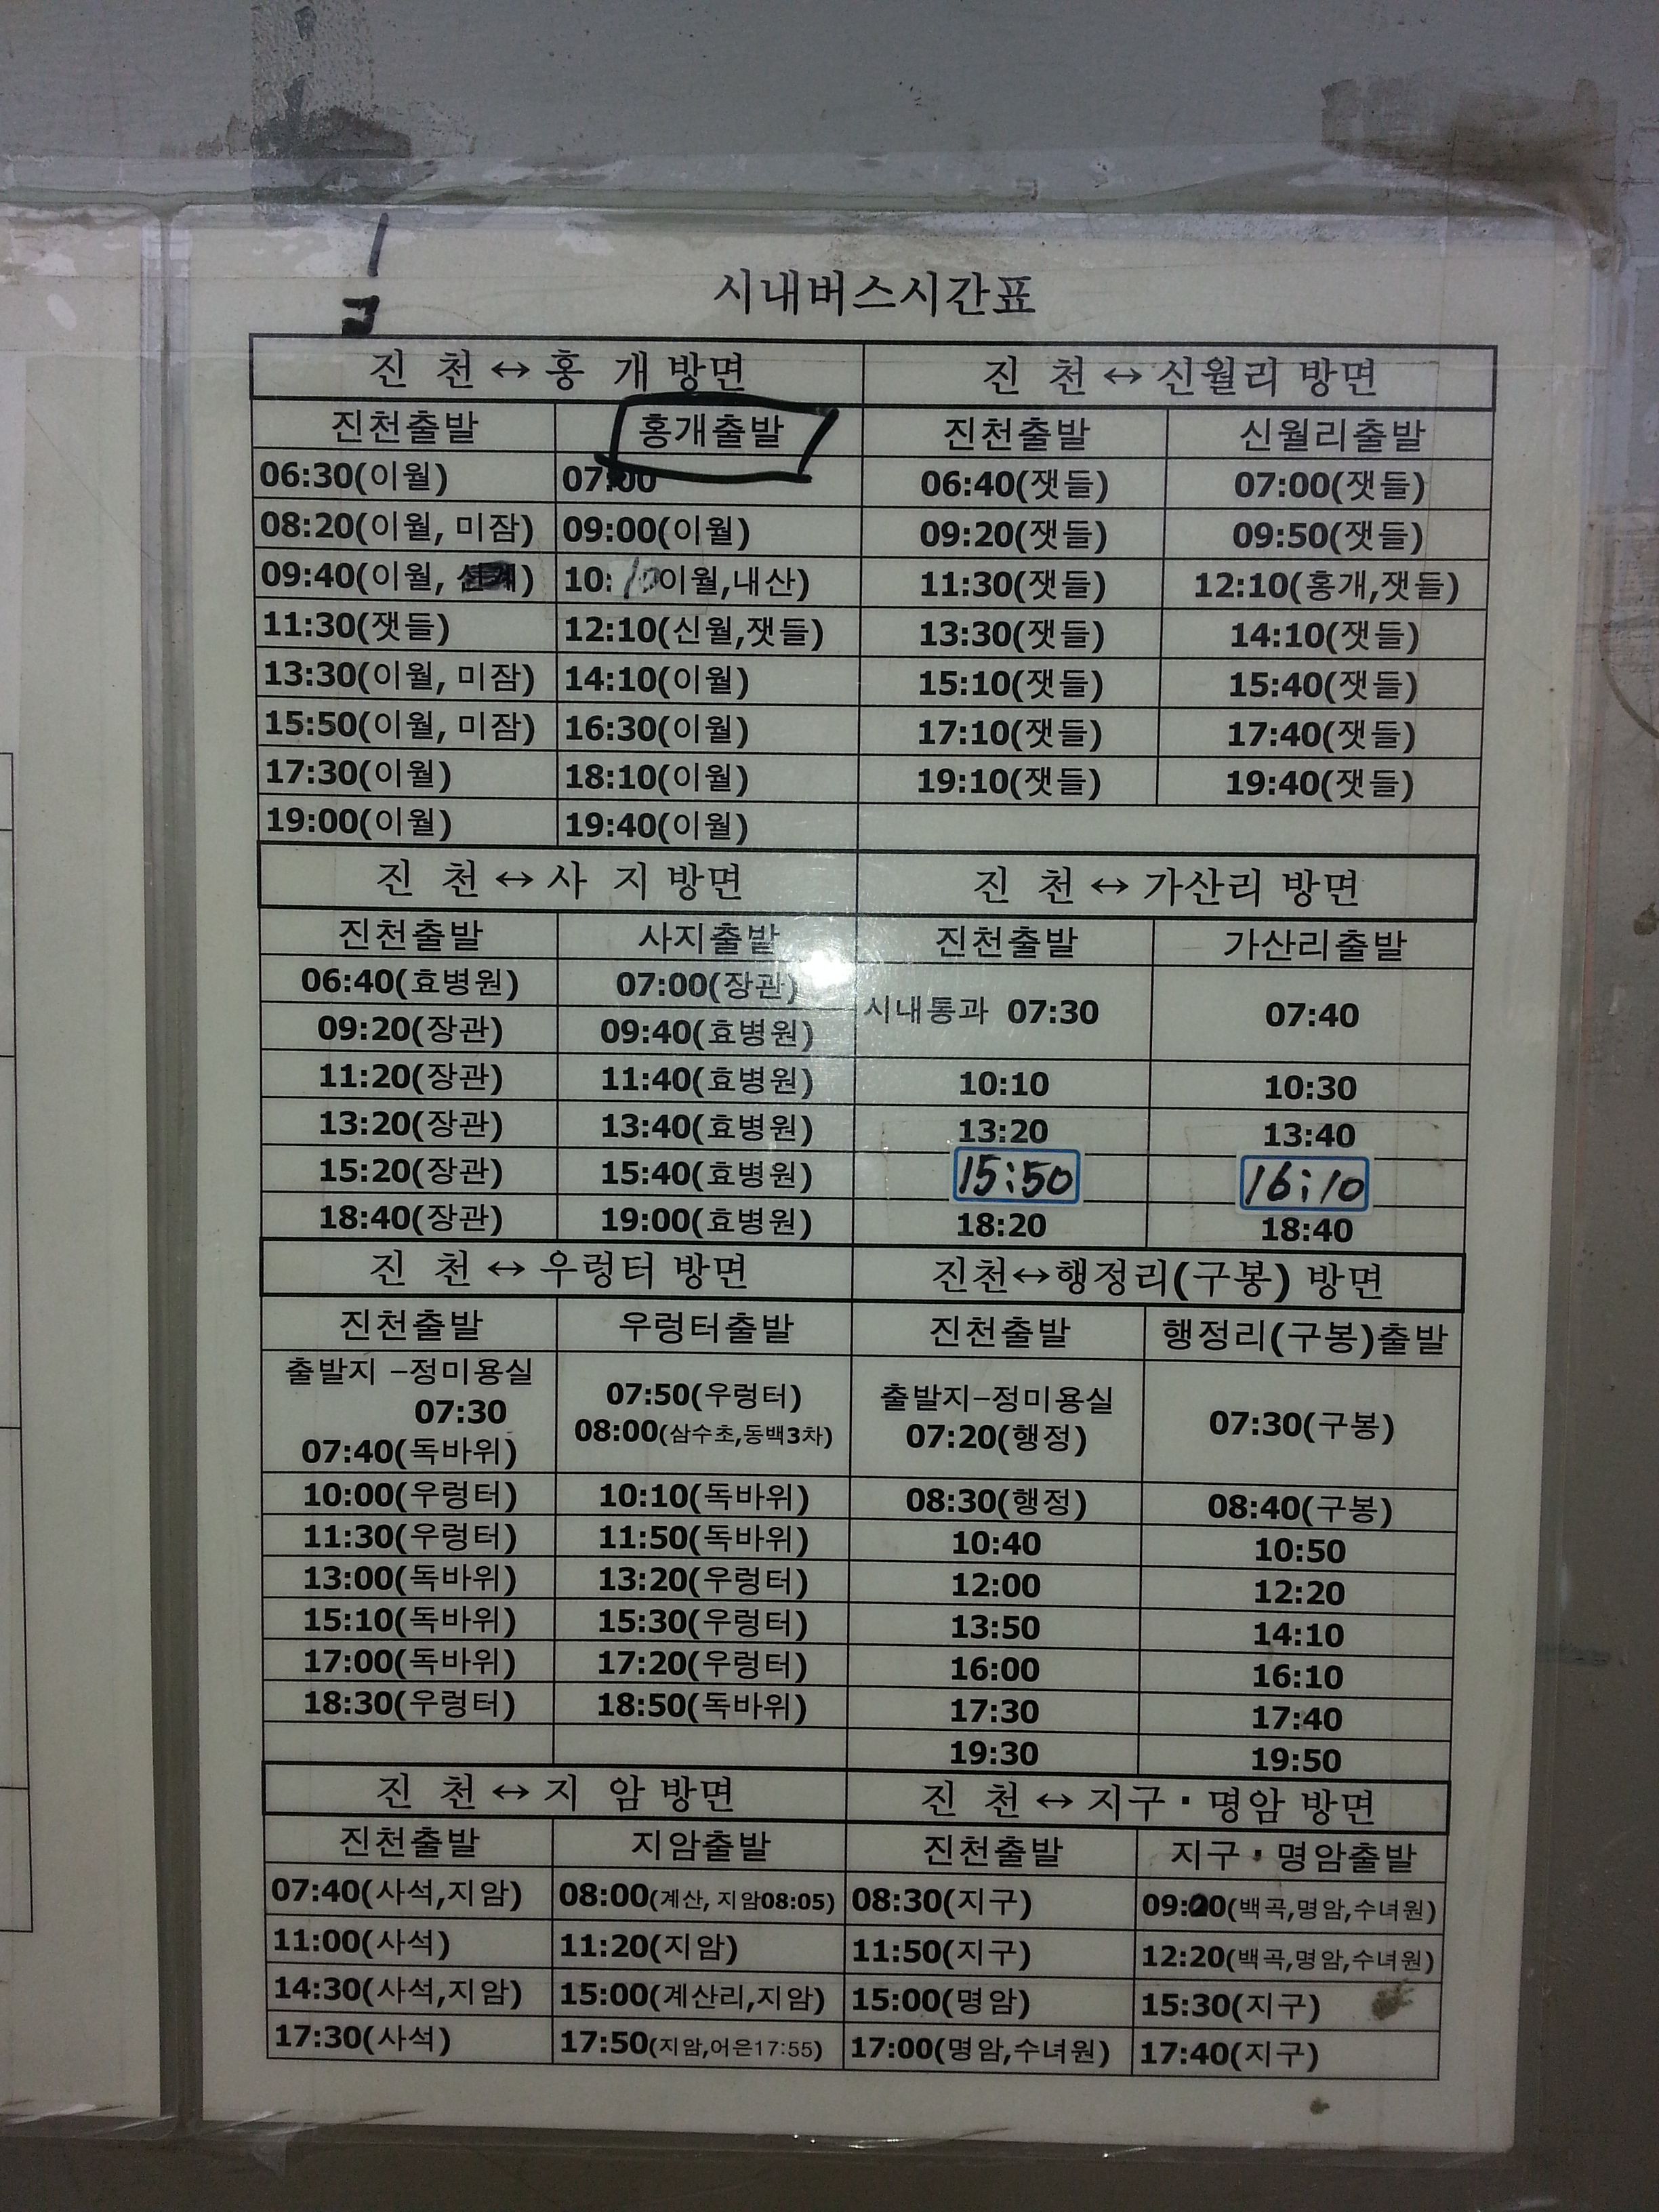 시내버스시간표
진 천 ↔ 홍 개 방면 진 천 ↔ 신월리 방면
진천출발 홍개출발 진천출발 신월리출발
06:30(이월) 07:00 06:40(잿들) 07:00(잿들)
08:20(이월, 미잠) 09:00(이월) 09:20(잿들) 09:50(잿들)
09:40(이월, ) 10:10이월,내산) 11:30(잿들) 12:10(홍개,잿들)
11:30(잿들) 12:10(신월,잿들) 13:30(잿들) 14:10(잿들)
13:30(이월, 미잠) 14:10(이월) 15:10(잿들) 15:40(잿들)
15:50(이월, 미잠) 16:30(이월) 17:10(잿들) 17:40(잿들)
17:30(이월) 18:10(이월) 19:10(잿들) 19:40(잿들)
19:00(이월) 19:40(이월)
진 천 ↔ 사 지 방면 진 천 ↔ 가산리 방면
진천출발 사지출발 진천출발 가산리출발
06:40(효병원) 07:00(장관) 시내통과 07:30 07:40
09:20(장관) 09:40(효병원)
11:20(장관) 11:40(효병원) 10:10 10:30
13:20(장관) 13:40(효병원) 13:20 13:40
15:20(장관) 15:40(효병원) 15:50 16:10
18:40(장관) 19:00(효병원) 18:20 18:40
진 천 ↔ 우렁터 방면 진천↔행정리(구봉) 방면
진천출발 우렁터출발 진천출발 행정리(구봉)출발
출발지 -정미용실 07:50(우렁터) 출발지-정미용실 07:30(구봉)
07:30 08:00(삼수초,동백3차) 07:20(행정)
07:40(독바위)
10:00(우렁터) 10:10(독바위) 08:30(행정) 08:40(구봉)
11:30(우렁터) 11:50(독바위) 10:40 10:50
13:00(독바위) 13:20(우렁터) 12:00 12:20
15:10(독바위) 15:30(우렁터) 13:50 14:10
17:00(독바위) 17:20(우렁터) 16:00 16:10
18:30(우렁터) 18:50(독바위) 17:30 17:40
19:30 19:50
진 천 ↔ 지 암 방면 진 천 ↔ 지구·명암 방면
진천출발 지암출발 진천출발 지구·명암출발
07:40(사석,지암) 08:00(계산, 지암08:05) 08:30(지구) 09:00(백곡,명암,수녀원)
11:00(사석) 11:20(지암) 11:50(지구) 12:20(백곡,명암,수녀원)
14:30(사석,지암) 15:00(계산리,지암) 15:00(명암) 15:30(지구)
17:30(사석) 17:50(지암,어은17:55) 17:00(명암,수녀원) 17:40(지구)